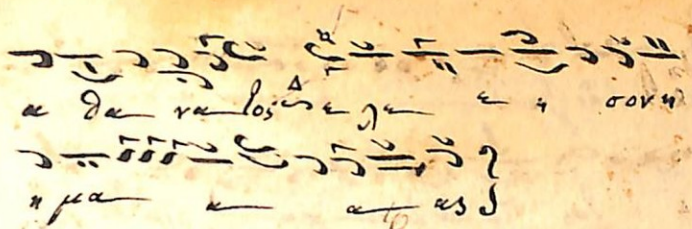 α θα να τος ε λε ε η σον η
η μα α α ας